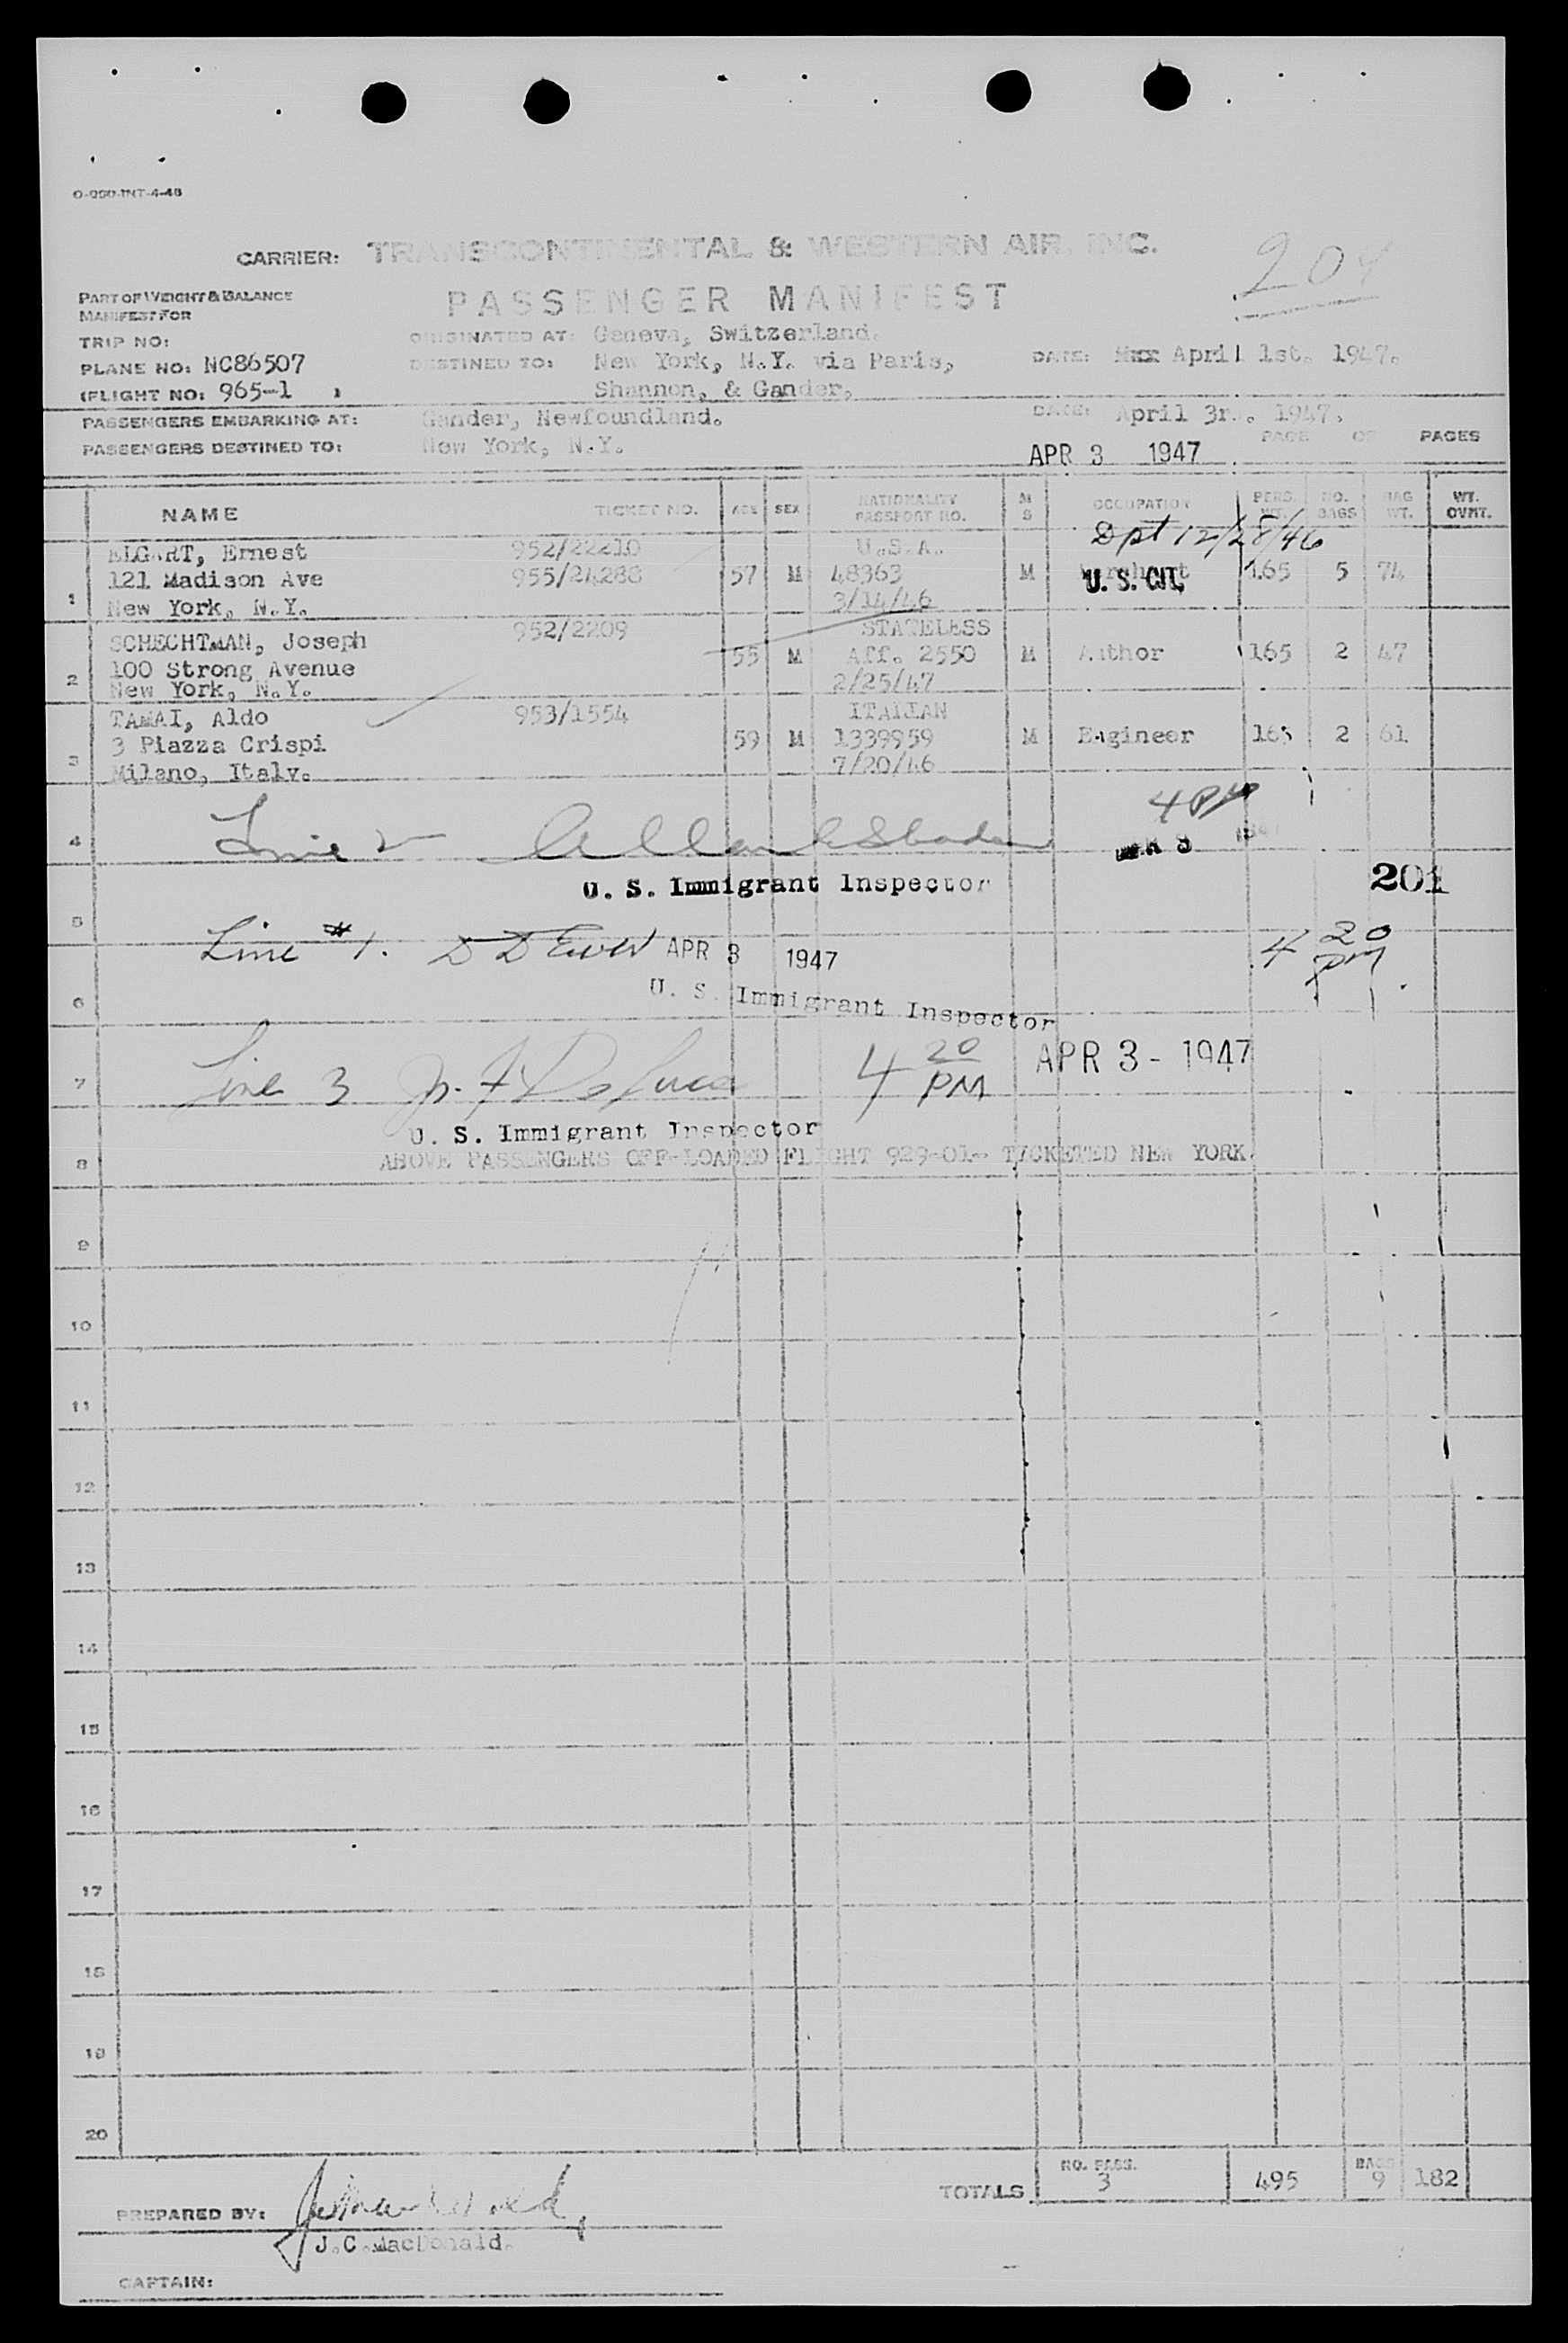 CARRIER: TRANSCONTINENTAL & WESTERN AIR, INC.
204
PART OF WEIGHT & BALANCE
MANIFEST FOR
PASSENGER MANIFEST
TRIP NO:
ORIGINATED AT: Geneva, Switzerland.
PLANE NO: NC86507
DESTINED TO: New York, N.Y. via Paris,
DATE: April 1st. 1947.
(FLIGHT NO: 965-1 )
Shannon, & Gander,
PASSENGERS EMBARKING AT: Gander, Newfoundland.
DATE: April 3rd. 1947.
PASSENGERS DESTINED TO: New York, N.Y.
APR 3 1947
PAGE OF PAGES
NAME TICKET NO. AGE SEX NATIONALITY PASSPORT NO. M S OCCUPATION PERS. WT. NO. BAGS BAG WT. WT. OVMT.
Dpt 12/28/46
ELGART, Ernest 952/22210 U.S.A.
121 Madison Ave 955/24288 57 M 48363 M U. S. CIT. 165 5 74
1 New York, N.Y. 3/14/46
SCHECHTMAN, Joseph 952/2209 STATELESS
100 Strong Avenue 55 M Aff. 2550 M Author 165 2 47
2 New York, N.Y. 2/25/47
TAMAI, Aldo 953/1554 ITALIAN
3 Piazza Crispi 59 M 1339959 M Engineer 165 2 61
3 Milano, Italy. 7/20/46
4 PM
4 Line 2
U. S. Immigrant Inspector
201
5
Line #1. APR 3 1947 4 20 PM
6 U. S. Immigrant Inspector
7 Line 3 4 20 PM APR 3 - 1947
U. S. Immigrant Inspector
8 ABOVE PASSENGERS OFF-LOADED FLIGHT 929-01- TICKETED NEW YORK
9
10
11
12
13
14
15
16
17
18
19
20
TOTALS NO. PASS. 3 495 BAGS 9 182
PREPARED BY:
J.C.MacDonald.
CAPTAIN: